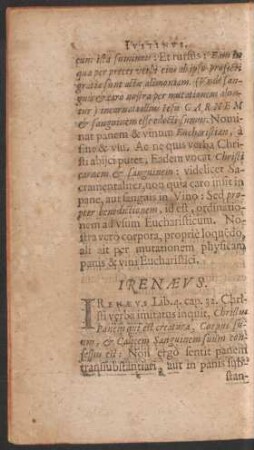 IVSTINVS.
cum ista sumimus: Et rursus:
qua per preces verbi eius ab ipso profecti
gratiæ sunt actæ alimoniam. (Vnde san-
guis & caro nostra per mutationem alun-
tur) incarnati illius Iesu CARNEM
& sanguinem esse edocti sumus. Nomi-
nat panem & vinum Eucharistian, à
fine & vsu. Ac ne quis verba Chri-
sti abijci putet, Eadem vocat Christi
carnem & sanguinem: videlicet Sa-
cramentaliter, non quia caro insit in
pane, aut sanguis in Vino: Sed pro-
pter benedictionem, id est, ordinatio-
nem ad vsum Eucharisticum. No-
stra vero corpora, propriè loquẽdo,
ali ait per mutationem physicam
panis & vini Eucharistici.
IRENÆVS.
IRENÆVS Lib. 4. cap. 32. Chri-
sti verba imitatus inquit. Christus
Panem qui est creatura, Corpus su-
um, & Calicem Sanguinem suum con-
fessus est: Non ergo sentit panem
transsubstantiari, aut in panis sub-
stan-